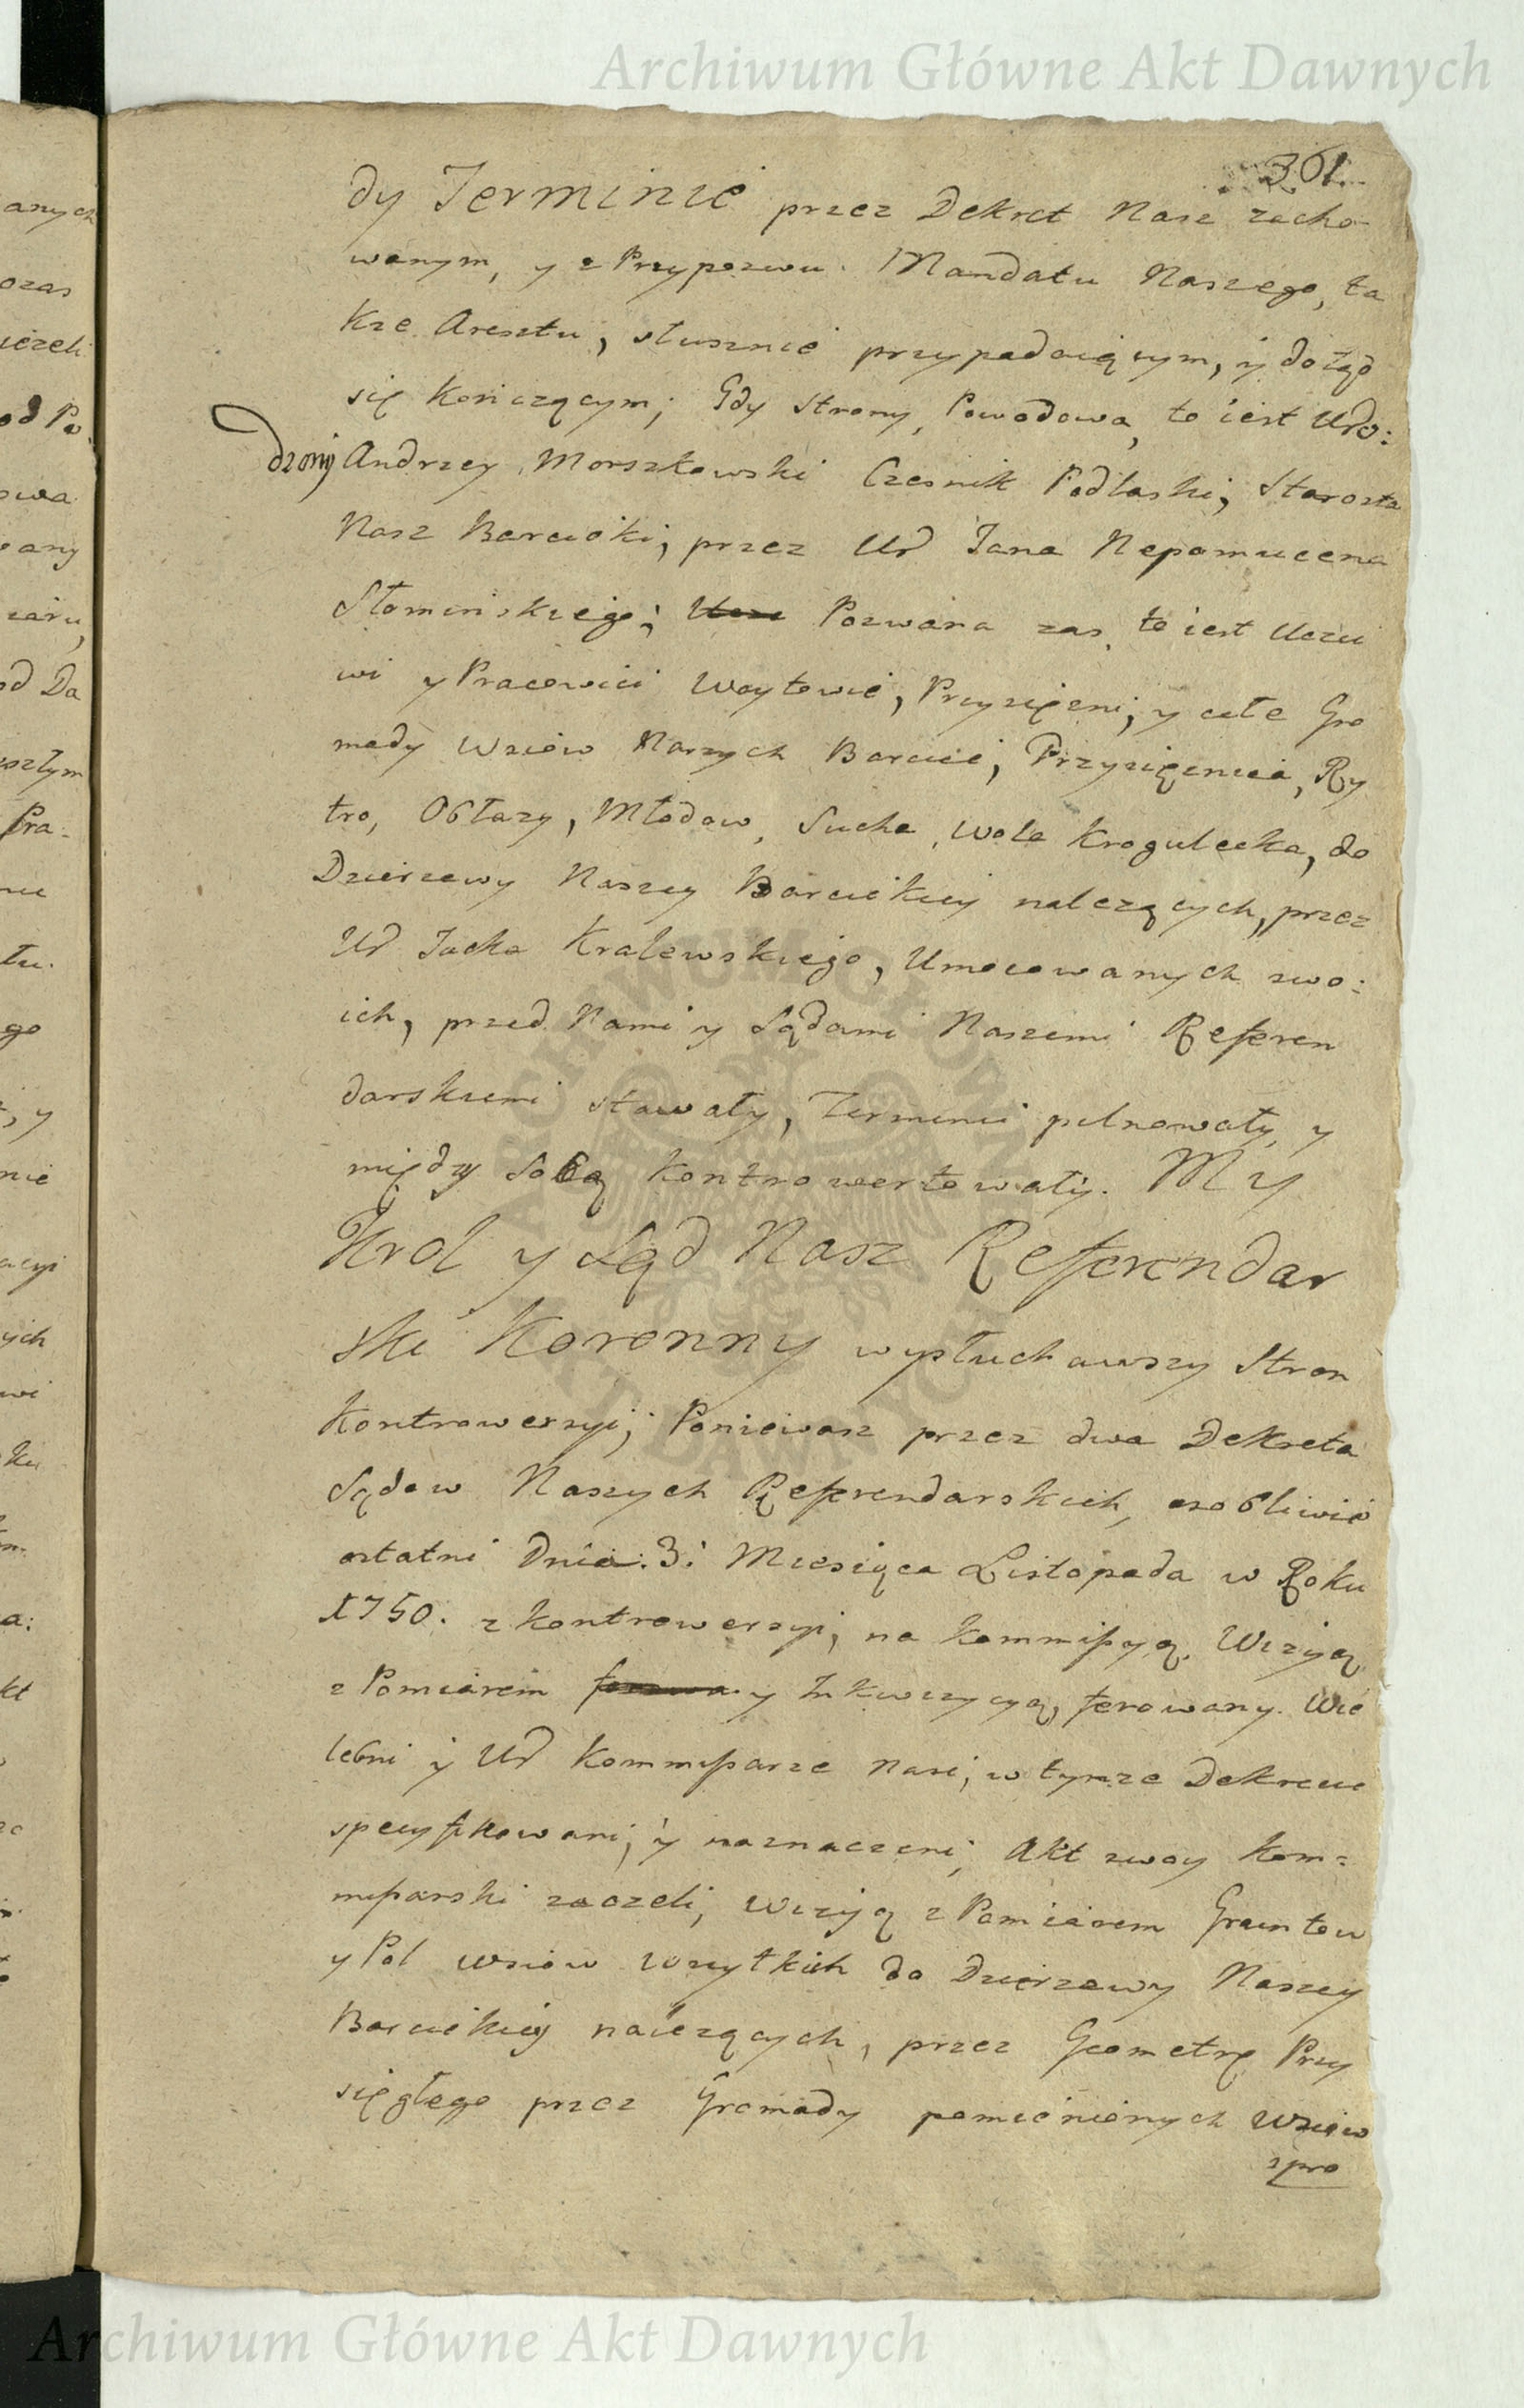 Archiwum Główne Akt Dawnych
361.
dy Terminie przez Dekret Nasz zacho-
wanym, y z Przypozwu. Mandatu Naszego, ta
kze Aresztu, słusznie przypadaiącym, y dotąd
się kończącym; Gdy Strony, Powodowa, to iest Uro:
dzony Andrzey Morszkowski Czesnik Podlaski, Starosta
Nasz Barcicki, przez Ur Jana Nepomucena
Słomińskiego; Pozwana zas, to iest Uczci
wi y Pracowici Woytowie, Przysięzni, y całe Gro
mady Wsiow Naszych Barcic, Przysietnica, Ry
tro, Obłazy, Młodow, Sucha, Wola Krogulecka, do
Dzierzawy Naszey Barcickiey nalezących, przez
Ur Jacka Kralewskiego, Umocowanych swo:
ich, przed Nami y Sądami Naszemi Referen
darskiemi stawały, Terminu pilnowały, y
między Sobą kontrowertowały. My
Krol y Sąd Nasz Referendar
ski Koronny wysłuchawszy Stron
Kontrowersyi; Poniewasz przez dwa Dekreta
Sądow Naszych Referendarskich, osobliwie
ostatni Dnia: 3: Miesiąca Listopada w Roku
1750. z kontrowersyi, na kommissyą, Wizyą
z Pomiarem y Inkwizycyą, ferowany. Wie
lebni y Ur Kommissarze Nasi, w tymze Dekrecie
specyfikowani, y naznaczeni, Akt swoy kom=
missarski zaczeli, Wizyą z Pomiarem Gruntow
y Pol Wsiow wszytkich do Dzierzawy Naszey
Barcickiey nalezących, przez Geometrę Przy
sięgłego przez Gromady pomienionych Wsiow
spro
Archiwum Główne Akt Dawnych